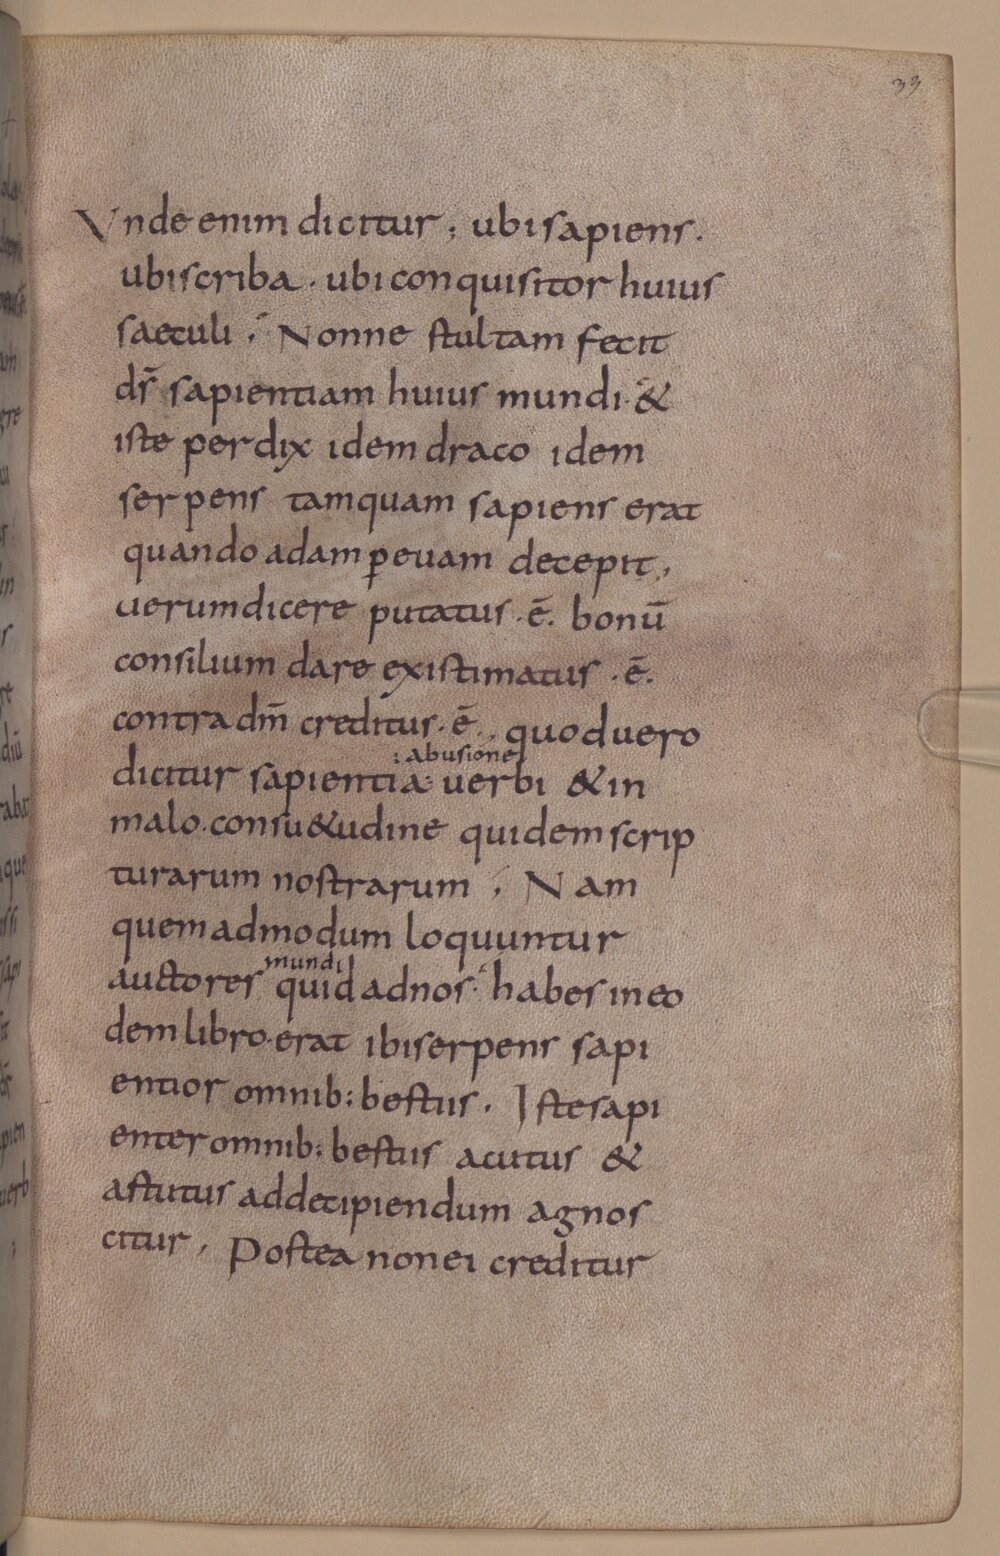 33
Vnde enim dicitur ; ubi sapiens .
ubi scriba . ubi conquisitor huius
saeculi ; Nonne stultam fecit
ds̄ sapientiam huius mundi . &
iste perdix idem draco idem
serpens tamquam sapiens erat
quando adam ꝑ euam decepit ,
uerum dicere putatus . ē . bonū
consilium dare existimatus . ē .
contra dm̄ creditus . ē . , quod uero
: abusione
dicitur sapientia : uerbi & in
malo . consu&udine quidem scrip
turarum nostrarum ; Nam
quemadmodum loquuntur
mundi
auctores quid ad nos . habes in eo
dem libro . erat ibi serpens sapi
entior omnib: bestiis . Iste sapi
enter omnib: bestiis acutus &
astutus ad decipiendum agnos
citur , Postea non ei creditur